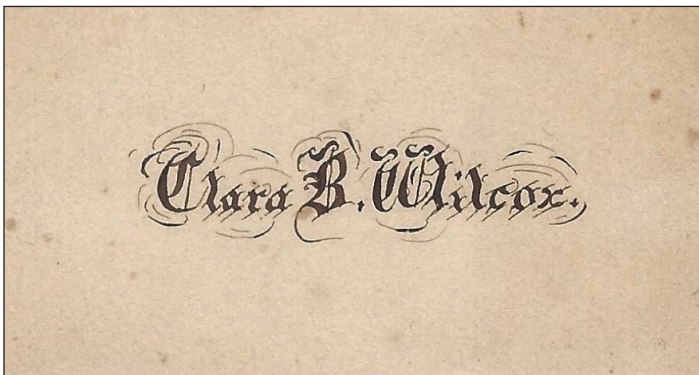 Clara B. Wilcox.